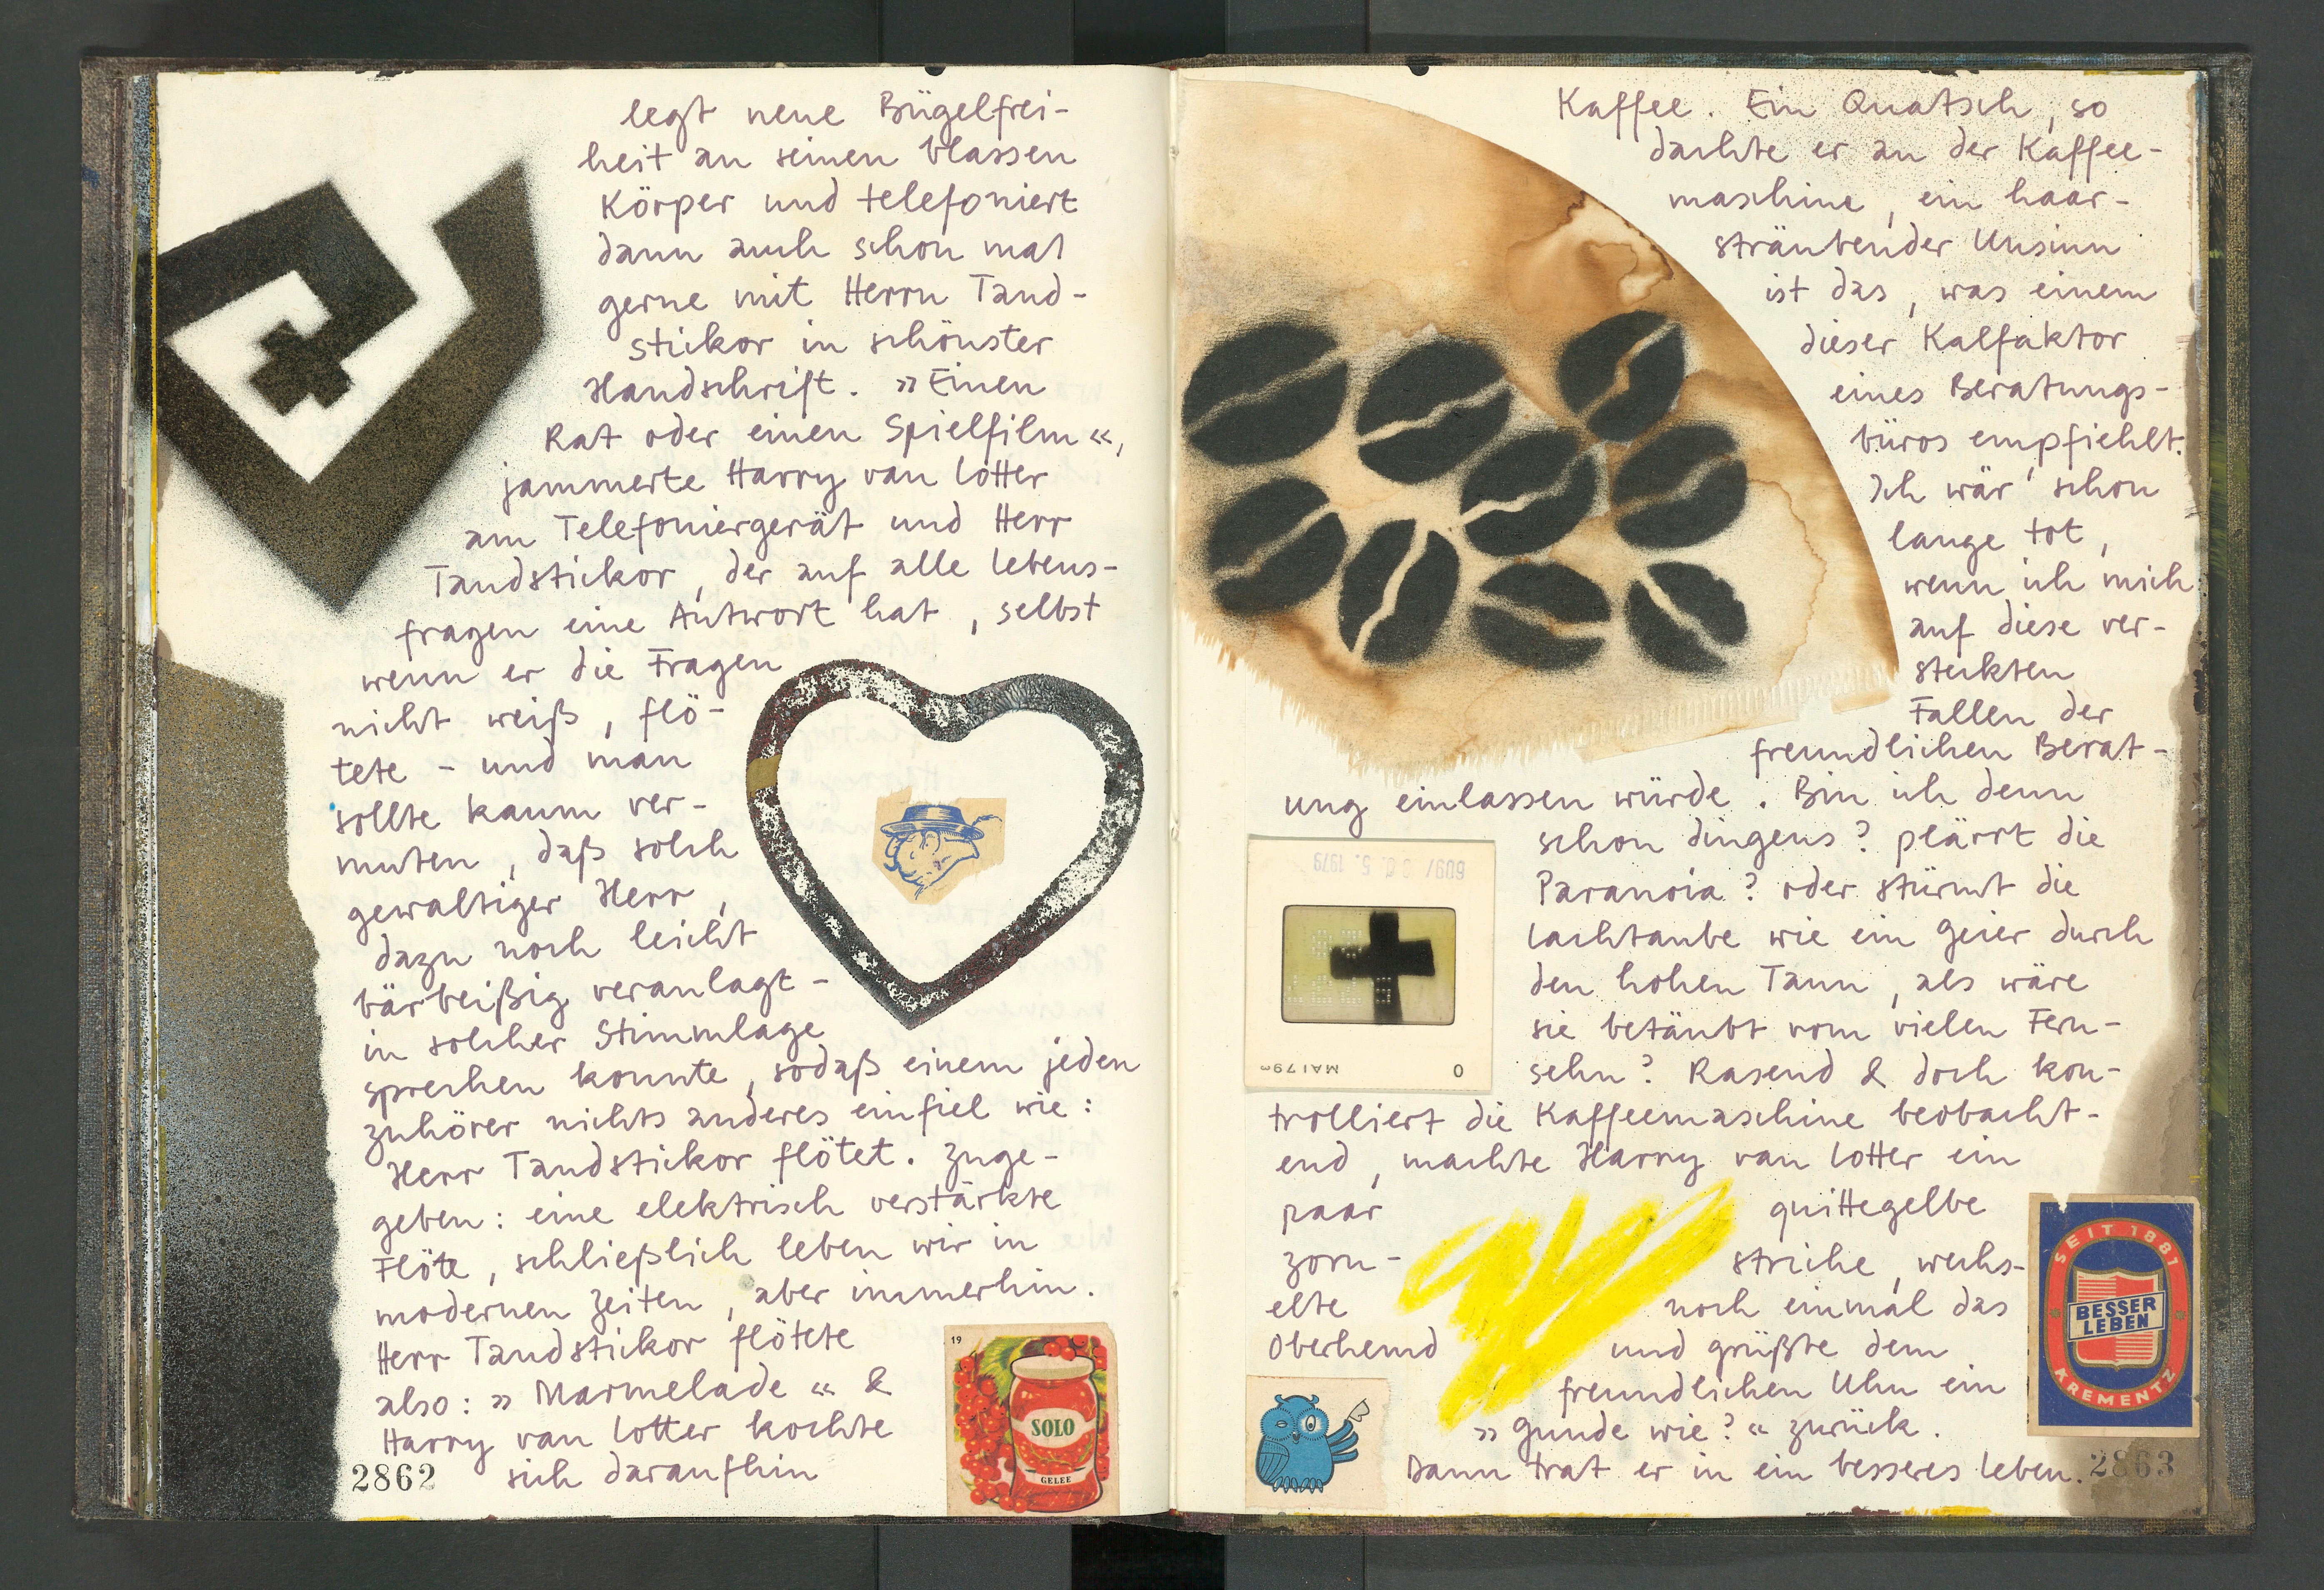 legt neue Bügelfrei-
heit an seinen blassen
Körper und telefoniert
dann auch schon mal
gerne mit Herrn Tand-
stickor in schönster
Handschrift. »Einen
Rat oder einen Spielfilm«,
jammerte Harry van Lotter
am Telefoniergerät und Herr
Tandstickor, der auf alle Lebens-
fragen eine Antwort hat, selbst
wenn er die Fragen
nicht weiß, flö-
tete - und man
sollte kaum ver-
muten, daß solch
gewaltiger Herr,
dazu noch leicht
bärbeißig veranlagt -
in solcher Stimmlage
sprechen konnte, sodaß einem jeden
Zuhörer nichts anderes einfiel wie:
Herr Tandstickor flötet. Zuge-
geben: eine elektrisch verstärkte
Flöte, schließlich leben wir in
modernen Zeiten, aber immerhin.
Herr Tandstickor flötete
also: »Marmelade« &
Harry van Lotter kochte
sich daraufhin
2862
19
SOLO
GELEE
Kaffee. Ein Quatsch, so
dachte er an der Kaffee-
maschine, ein haar-
sträubender Unsinn
ist das, was einem
dieser Kalfaktor
eines Beratungs-
büros empfiehlt.
Ich wär' schon
lange tot,
wenn ich mich
auf diese ver-
steckten
Fallen der
freundlichen Berat-
ung einlassen würde. Bin ich denn
schon dingens? plärrt die
Paranoia? oder stürmt die
Lachtaube wie ein Geier durch
den hohen Tann, als wäre
sie betäubt vom vielen Fern-
sehn? Rasend & doch kon-
trolliert die Kaffeemaschine beobacht-
end, machte Harry van Lotter ein
paar quittegelbe
Zorn- striche, wechs-
elte noch einmal das
Oberhemd und grüßte dem
freundlichen Uhu ein
»Gunde wie?« zurück.
Dann trat er in ein besseres Leben.
5. 1979
MAI79
0
SEIT 1881
BESSER
LEBEN
KREMENTZ
2863